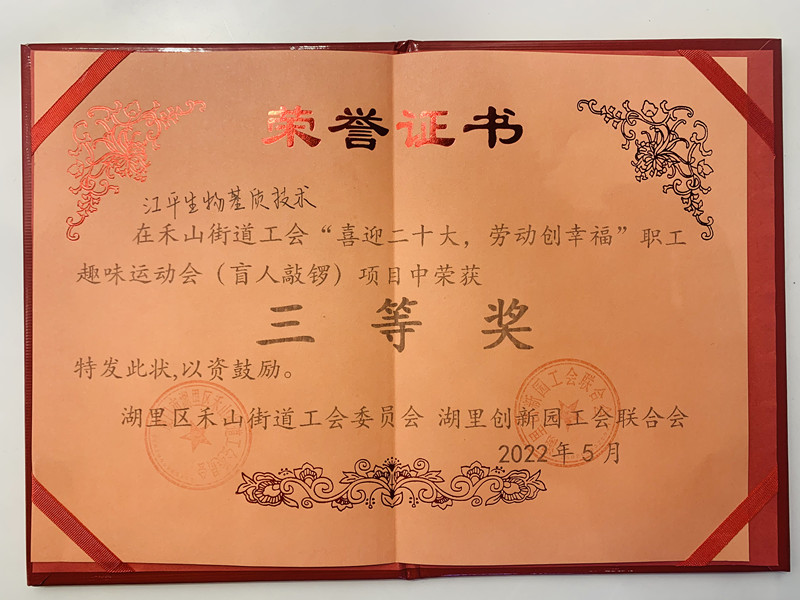 荣誉证书
江平生物基质技术
在禾山街道工会“喜迎二十大，劳动创幸福”职工
趣味运动会（盲人敲锣）项目中荣获
三等奖
特发此状,以资鼓励。
湖里区禾山街道工会委员会 湖里创新园工会联合会
2022年5月